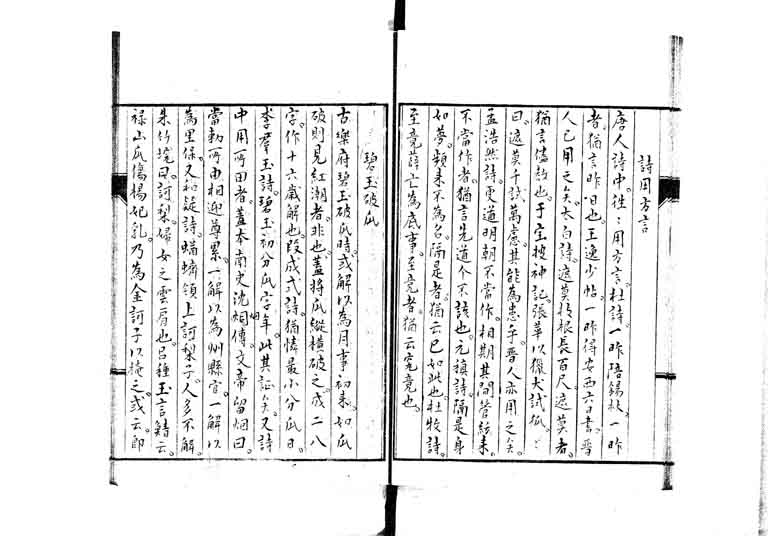 詩用方言
唐人詩中。往〻用方言。杜詩。一昨陪錫杖。一昨
者。猶言昨日也。王逸少帖。一昨得安西六日書。晉
人已用之矣。太白詩。遮莫枝根長百尺。遮莫者。
猶言儘教也。干寶搜神記。張華以獵犬試狐。〻
曰。遮莫千試萬慮。其能為患乎。晉人亦用之矣。
孟浩然詩。更道明朝不當作。相期共鬪管絃來。
不當作者。猶言先道个不該也。元稹詩。隔是身
如夢。頻來不為名。隔是者。猶云已如此也。杜牧詩。
至竟薛亡為底事。至竟者。猶云究竟也。
碧玉破瓜
古樂府碧玉破瓜時。或解以為月事初來。如瓜
破則見紅潮者。非也。蓋將瓜縱横破之。成二八
字。作十六歲解也。段成式詩。猶憐最小分瓜日。
李群玉詩。碧玉初分瓜字年。此其証矣。又詩
中用所由者。蓋本南史沈烱傳。文帝留烱曰。
當勅所由相迎尊累。一解以為州縣官。一解以
為里保。又和凝詩。蝤蠐領上訶梨子。人多不解。
朱竹垞曰。訶梨。婦女之雲肩也。呂種玉言鯖云。
祿山爪傷楊妃乳。乃為金訶子以掩之。或云。即